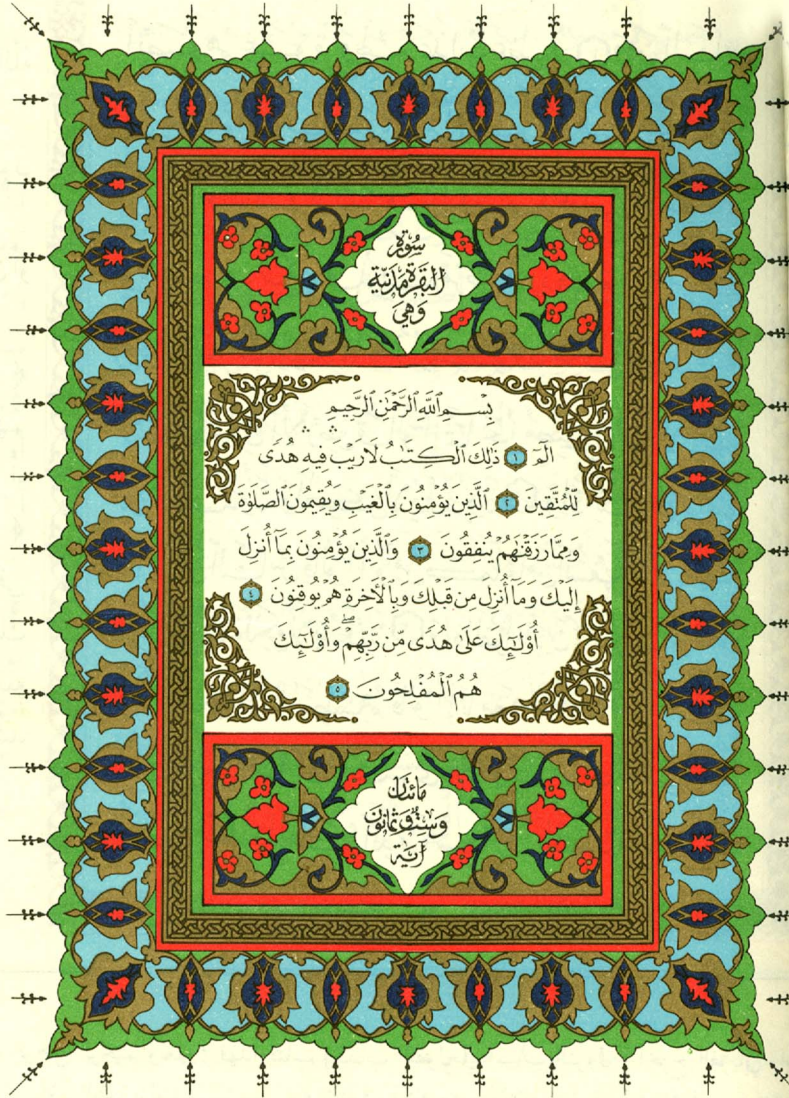 سُورَةُ
الْبَقَرَةِ مَدَنِيَّةٌ
وَهِيَ
بِسْمِ ٱللَّهِ ٱلرَّحْمَٰنِ ٱلرَّحِيمِ
الٓمٓ ۝١ ذَٰلِكَ ٱلْكِتَٰبُ لَا رَيْبَ فِيهِ هُدًى
لِّلْمُتَّقِينَ ۝٢ ٱلَّذِينَ يُؤْمِنُونَ بِٱلْغَيْبِ وَيُقِيمُونَ ٱلصَّلَوٰةَ
وَمِمَّا رَزَقْنَٰهُمْ يُنفِقُونَ ۝٣ وَٱلَّذِينَ يُؤْمِنُونَ بِمَآ أُنزِلَ
إِلَيْكَ وَمَآ أُنزِلَ مِن قَبْلِكَ وَبِٱلْأَخِرَةِ هُمْ يُوقِنُونَ ۝٤
أُو۟لَٰٓئِكَ عَلَىٰ هُدًى مِّن رَّبِّهِمْ ۖ وَأُو۟لَٰٓئِكَ
هُمُ ٱلْمُفْلِحُونَ ۝٥
مَائَتَانِ
وَسِتٌّ وَثَمَانُونَ
آيَةً